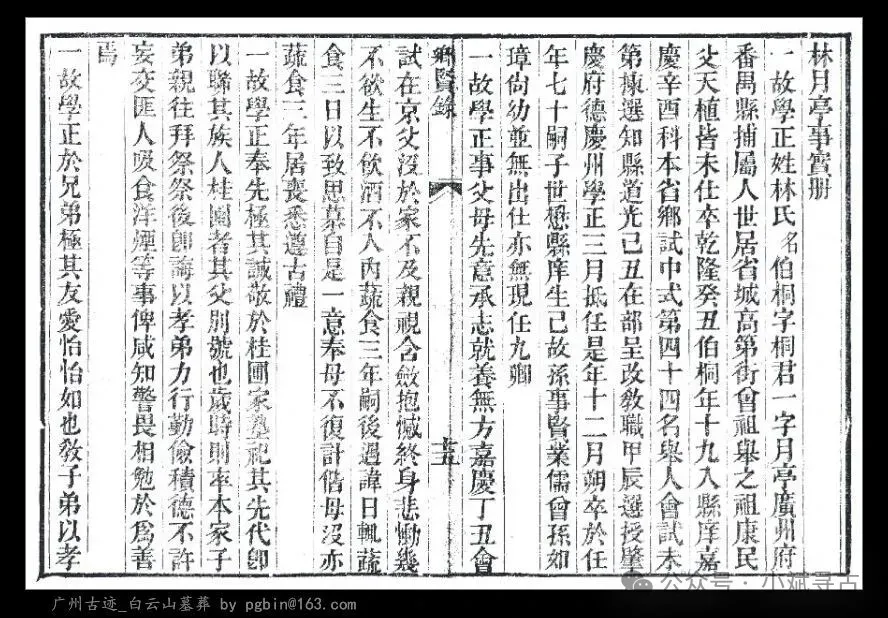 林月亭事實册
一故學正姓林氏名伯桐字桐君一字月亭廣州府
番禺縣捕屬人世居省城高第街曾祖舉之祖康民
父天植皆未仕卒乾隆癸丑伯桐年十九入縣庠嘉
慶辛酉科本省鄉試中式第四十四名舉人會試未
第揀選知縣道光己丑在部呈改教職甲辰選授肇
慶府德慶州學正三月抵任是年十二月朔卒於任
年七十嗣子世懋縣庠生已故孫事賢業儒曾孫如
璋尙幼並無出仕亦無現任九卿
一故學正事父母先意承志就養無方嘉慶丁丑會
鄉賢錄
十五
試在京父沒於家不及親視含斂抱憾終身悲慟幾
不欲生不飲酒不入內蔬食三年嗣後過諱日輒蔬
食三日以致思慕自是一意奉母不復計偕母沒亦
蔬食三年居喪悉遵古禮
一故學正奉先極其誠敬於桂圃家塾祀其先代卽
以聯其族人桂圃者其父別號也歲時則率本家子
弟親往拜祭祭後卽誨以孝弟力行勤儉積德不許
妄交匪人吸食洋煙等事俾咸知警畏相勉於爲善
焉
一故學正於兄弟極其友愛怡怡如也敎子弟以孝
公众号·小斌寻古
广州古迹_白云山墓葬 by pgbin@163.com